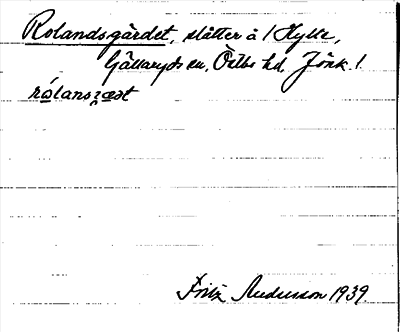 Rolandsgärdet, slåtter å 1 Hylte,
Gällaryds sn, Östbo hd, Jönk. l.
rólansɟæɹt
Fritz Andersson 1939.